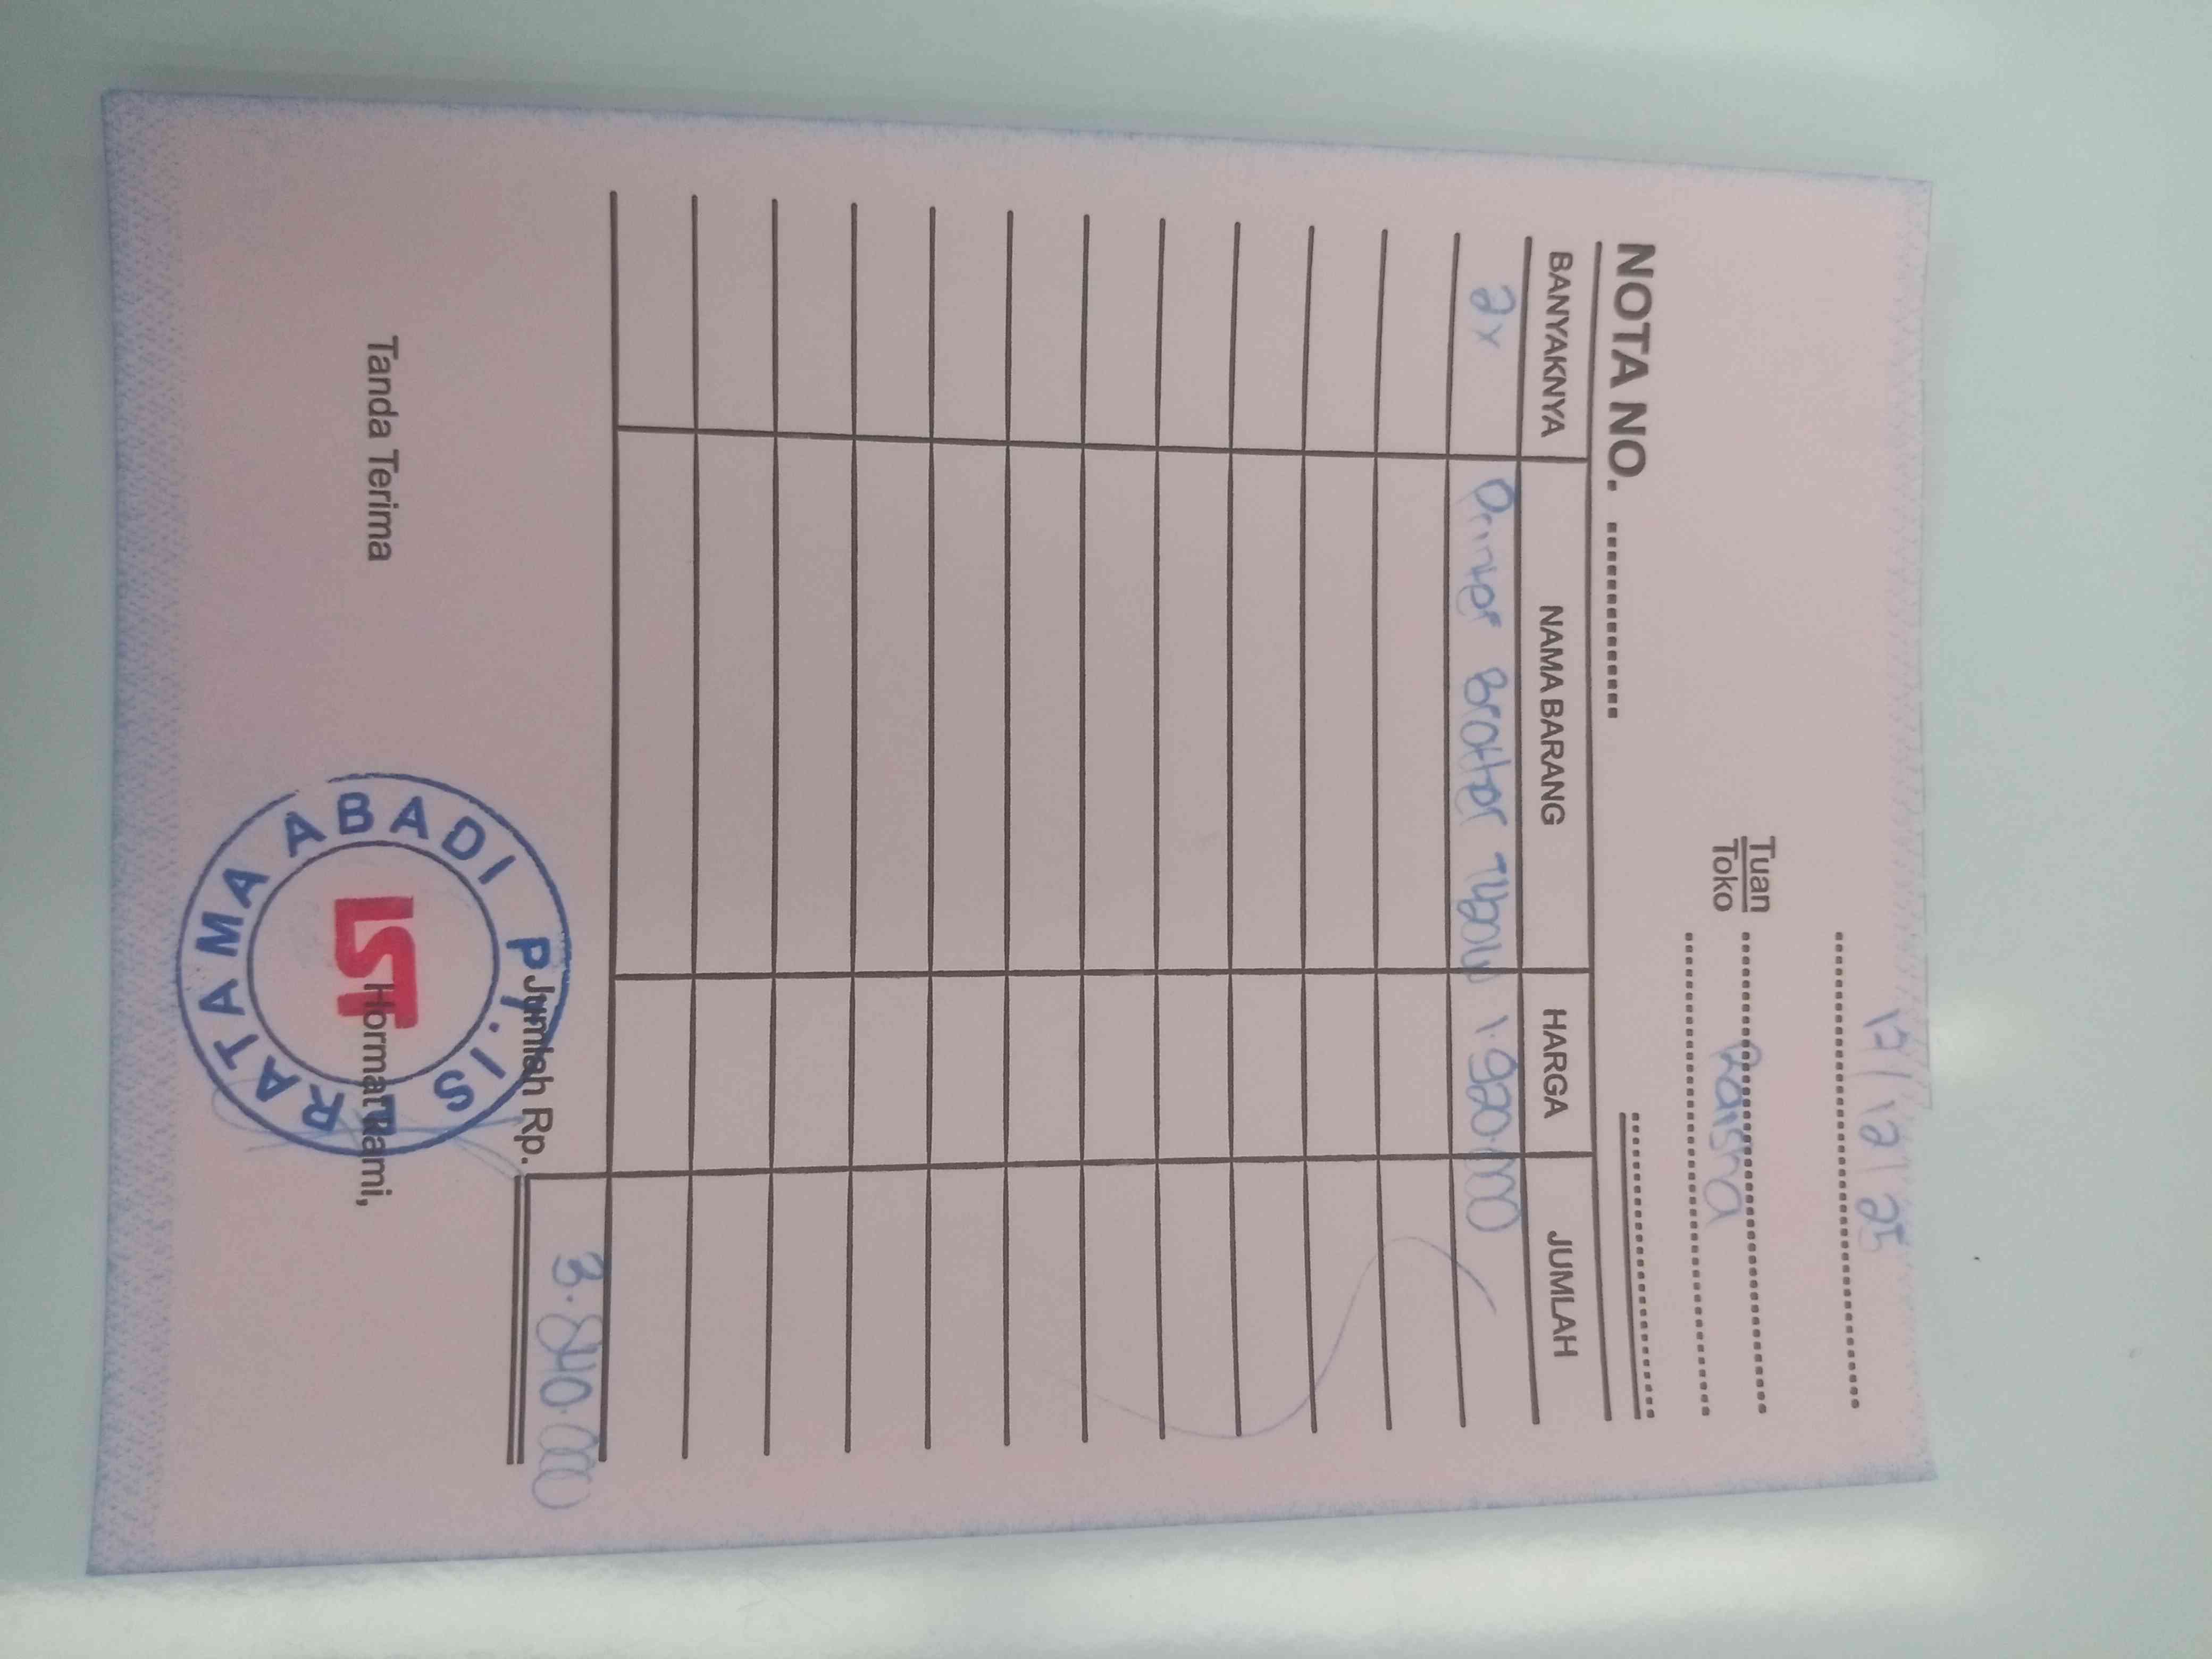 12/12/25
Tuan
Toko
Raisha
NOTA NO.
BANYAKNYA NAMA BARANG HARGA JUMLAH
2x Printer Brother 1.920.000
Jumlah Rp. 3.840.000
Tanda Terima Hormat Kami,
PT. IS RATAMA ABADI
IST